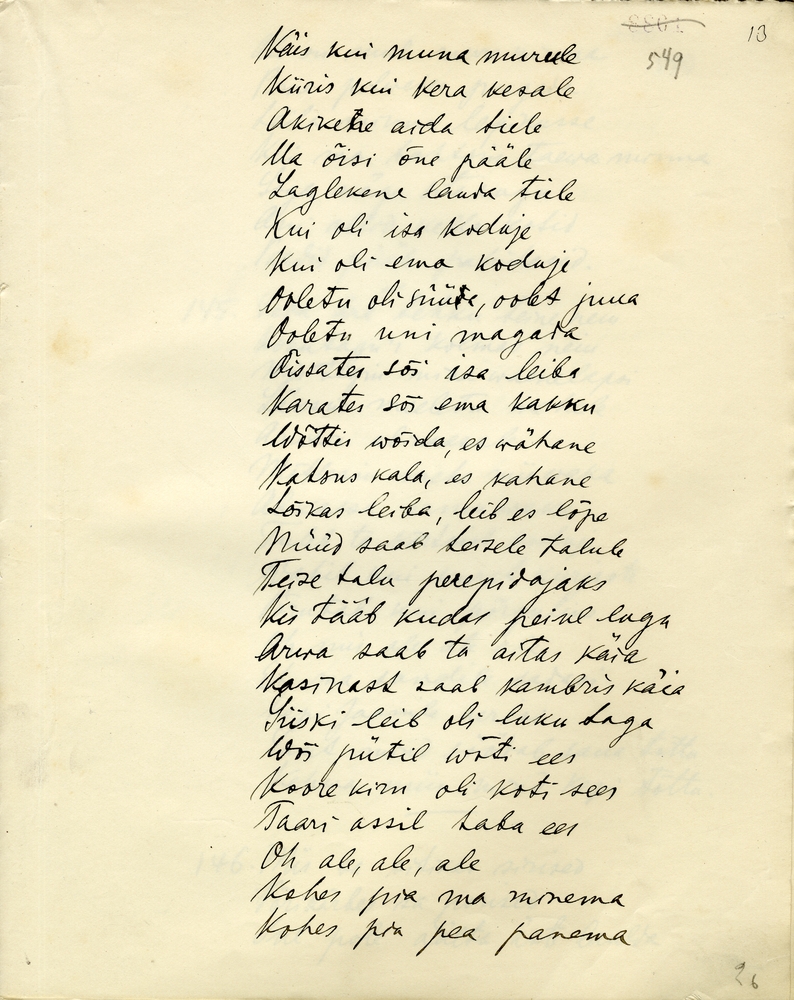 13
549
Käis kui muna murule
Kiiris kui kera kesale
Akikene aida tiele
Ma õisi õne pääle
Laglekene lauda tiele
Kui oli isa koduje
Kui oli ema koduje
Ooletu oli süüa, oolet juua
Ooletu uni magada
Õissates sõi isa leiba
Karates sõi ema kakku
Wõttis wõida, es wähane
Katsus kala, es kahane
Lõikas leiba, leib es lõpe
Nüüd saab teisele talule
Teise talu perepidajaks
Kis tääb kudas peiul lugu
Arwa saab ta aitas käia
Kasinast saab kambris käia
Siiski leib oli luku taga
Wõi pütil wõti ees
Koore kirn oli koti sees
Taari assil taba ees
Oh ale, ale, ale
Kohes pia ma minema
Kohes pia pea panema
26